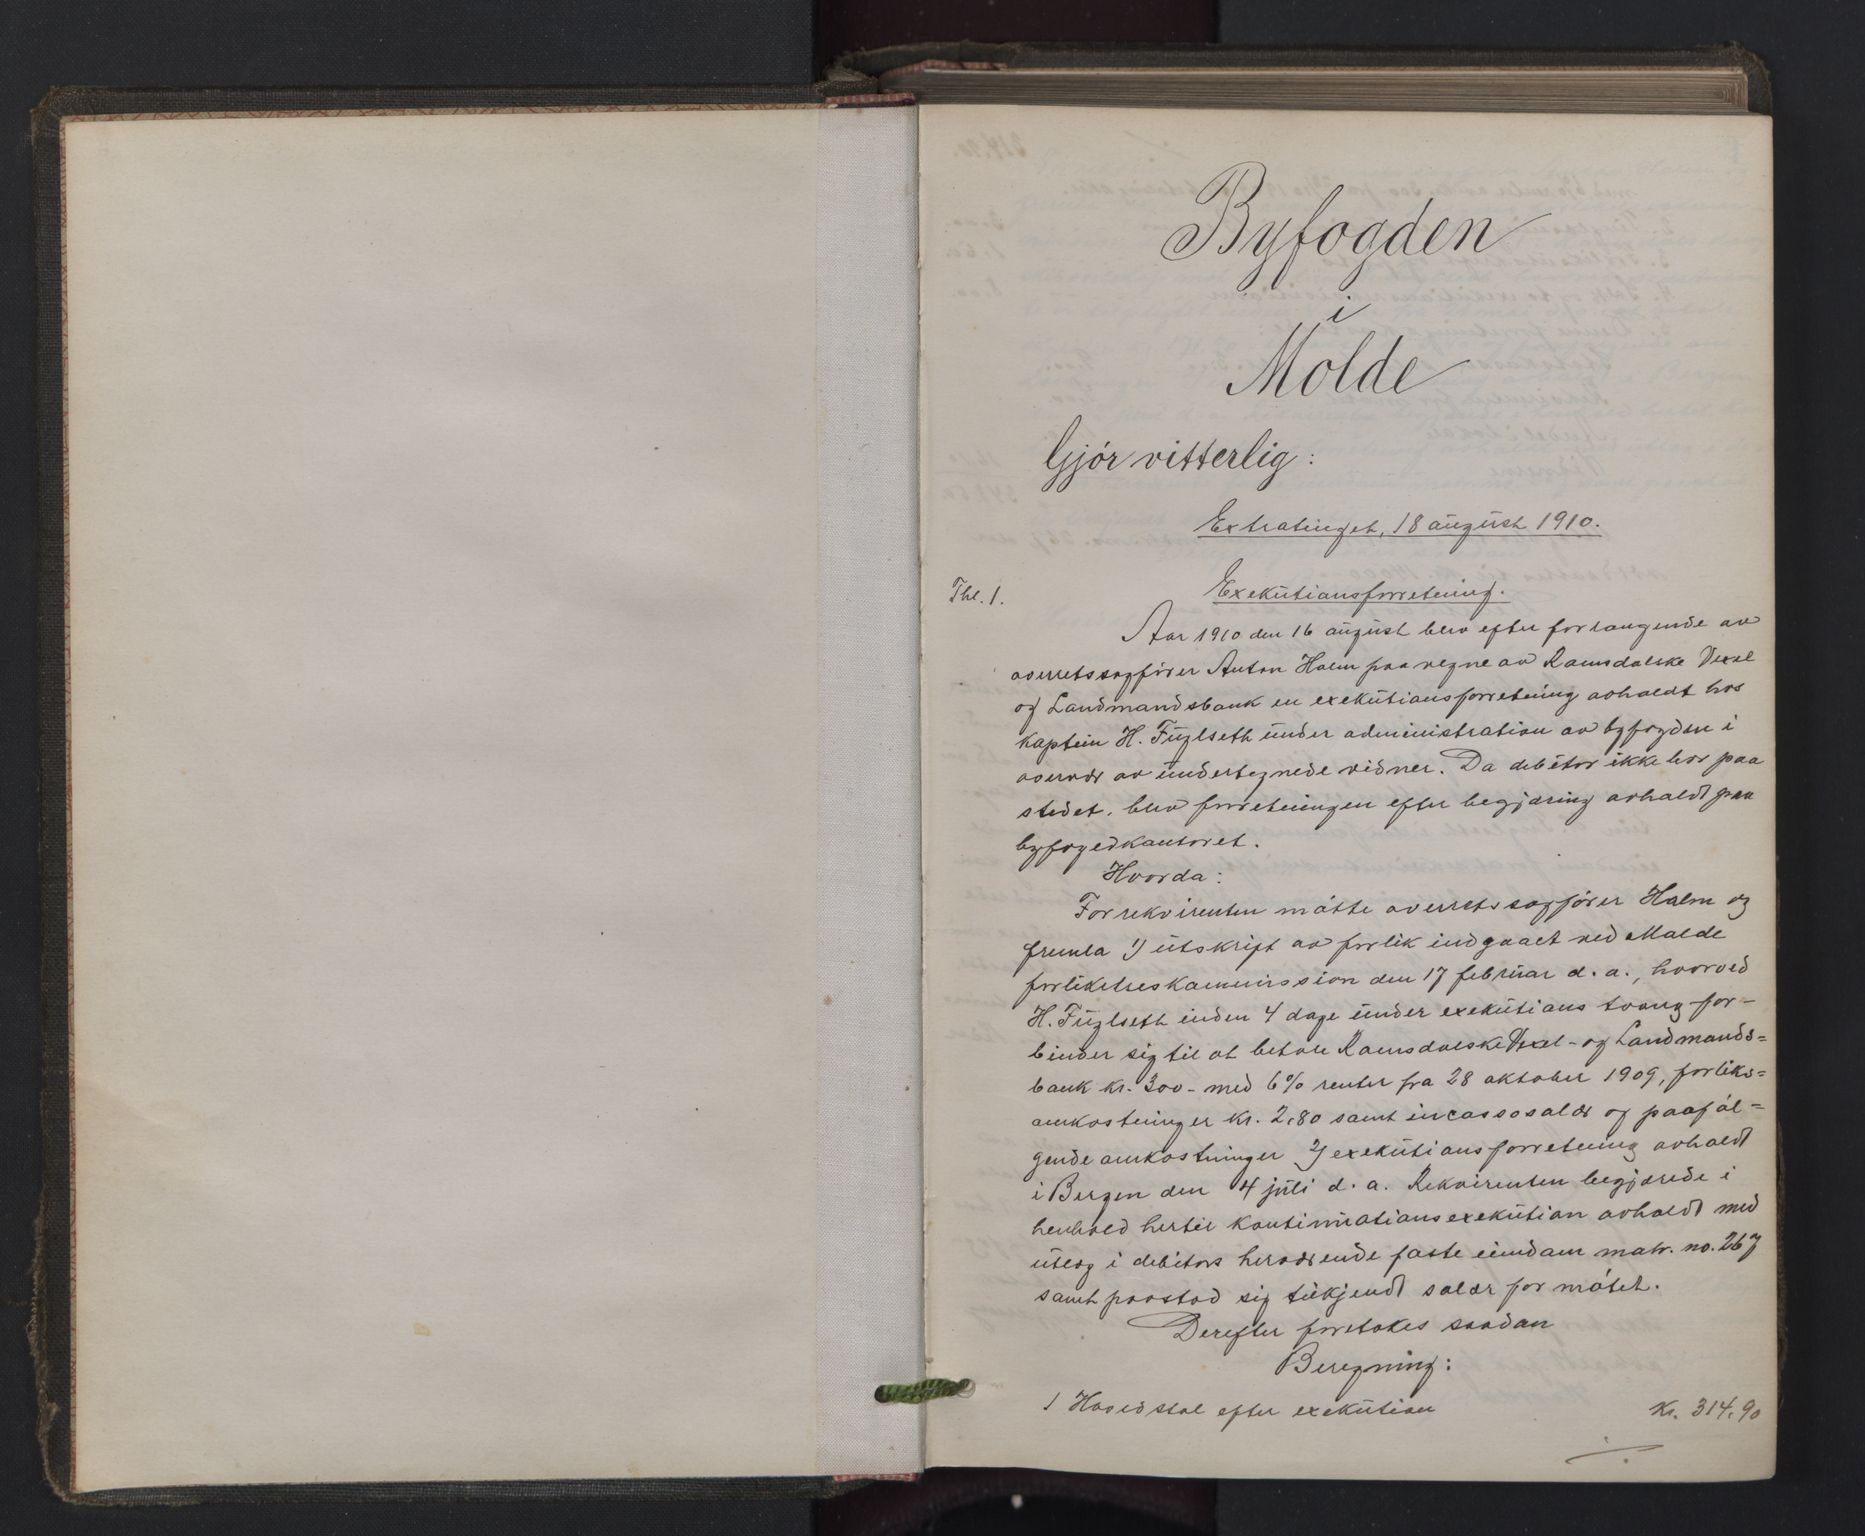 Byfogden
i
Molde
Gjör vitterlig:
Extratinget, 18 august 1910.
Tbl. 1.
Exekutionsforretning.
Aar 1910 den 16 august blev efter forlangende av
overretssagförer Anton Holm paa vegne av Romsdalske Vexel
og Landmandsbank en exekutionsforretning avholdt hos
kaptein H. Fuglseth under administration av byfogden i
overvær av undertegnede vidner. Da debitor ikke bor paa
stedet, blev forretningen efter begjæring avholdt paa
byfogedkontoret.
Hvorda:
For rekvirenten mötte overretssagförer Holm og
fremla 1) utskript av forlik indgaaet ved Molde
forlikelseskommission den 17 februar d. a., hvorved
H. Fuglseth inden 4 dage under exekutions tvang for-
binder sig til at betale Romsdalske Vexel- og Landmands=
bank kr. 300- med 6% renter fra 28 oktober 1909, forliks=
omkostninger kr. 2,80 samt incassosalær og paaföl=
gende omkostninger 2) exekutionsforretning avholdt
i Bergen den 4 juli d. a. Rekvirenten begjærede i
henhold hertil kontinuationsexekution avholdt med
utlæg i debitors herværende faste eiendom matr. no. 267
samt paastod sig tilkjendt salær for mötet.
Derefter foretokes saadan
Beregning:
1 Hovedstol efter exekution kr. 314,90